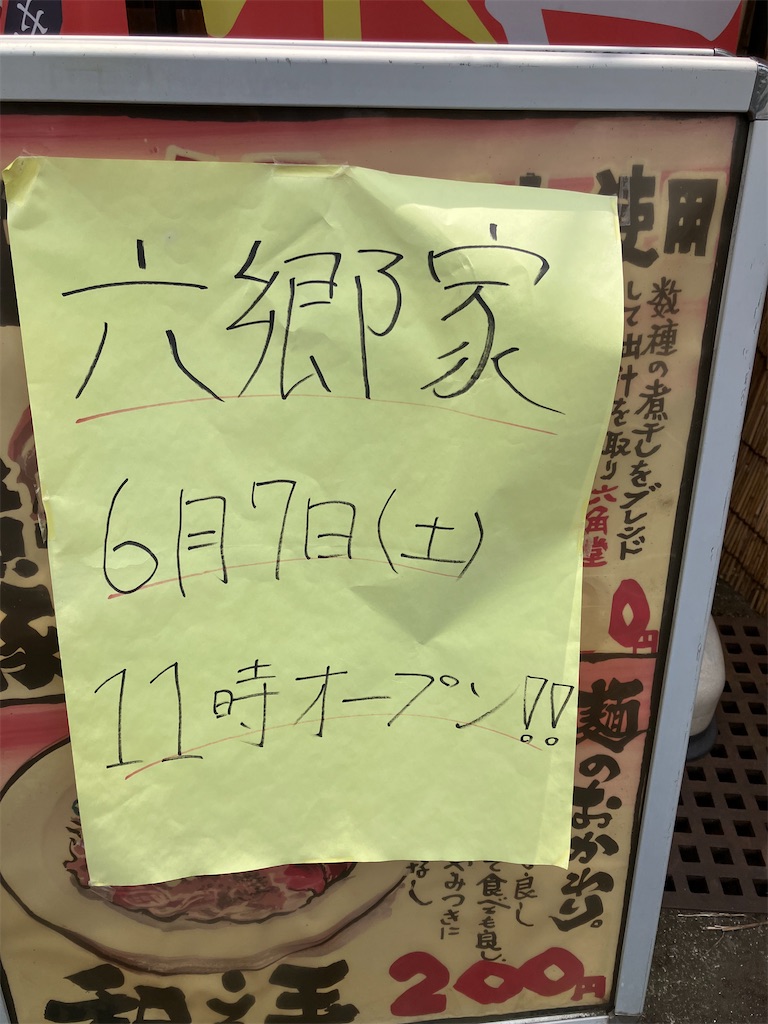 六郷家
6月7日(土)
11時オープン!!
使用
数種の煮干しをブレンド
して出汁を取り六角堂
0円
麺のおかわり。
良し
て食べても良し、
みつきに
なし
200円